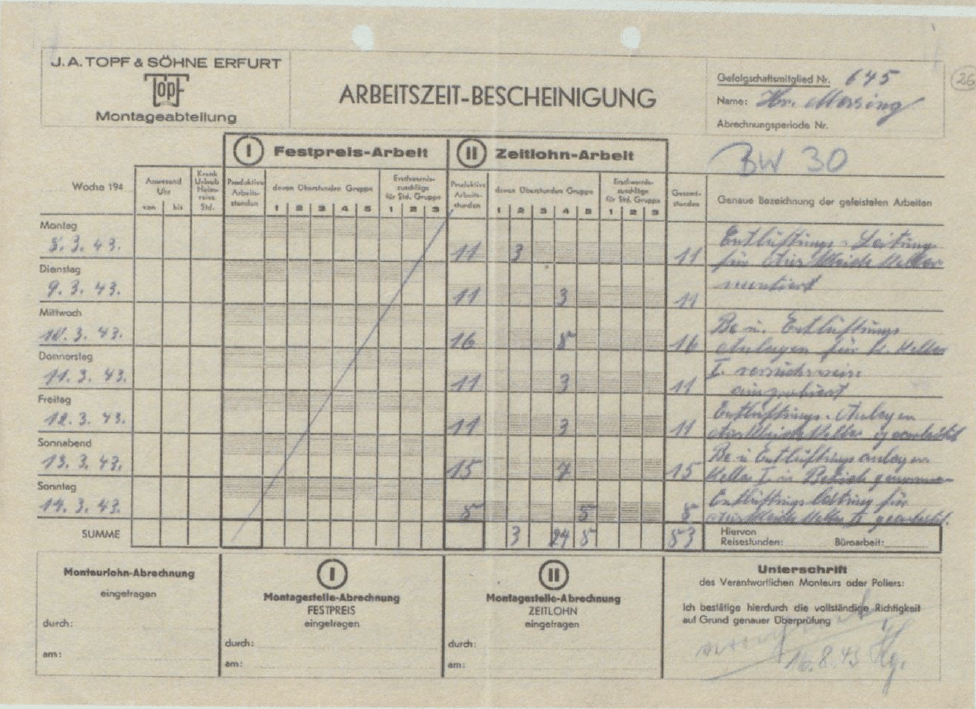 J. A. TOPF & SÖHNE ERFURT
TOPF
Montageabteilung
ARBEITSZEIT-BESCHEINIGUNG
Gefolgschaftsmitglied Nr. 645
Name: Hr. Messing
Abrechnungsperiode Nr.
26
BW 30
I Festpreis-Arbeit
II Zeitlohn-Arbeit
Woche 194
Anwesend Uhr von bis
Krank Urlaub Heimreise Std.
Produktive Arbeitsstunden
davon Überstunden Gruppe 1 2 3 4 5
Erschwerniszuschläge für Std. Gruppe 1 2 3
Produktive Arbeitsstunden
davon Überstunden Gruppe 1 2 3 4 5
Erschwerniszuschläge für Std. Gruppe 1 2 3
Gesamtstunden
Genaue Bezeichnung der geleisteten Arbeiten
Montag
8. 3. 43. 11 3 11 Entlüftungs-Leitung
für Auskleide Keller
Dienstag
9. 3. 43. 11 3 11 montiert
Mittwoch
10. 3. 43. 16 8 16 Be u. Entlüftungs
Anlagen für L. Keller
Donnerstag
11. 3. 43. 11 3 11 I versuchsweise
einprobiert
Freitag
12. 3. 43. 11 3 11 Entlüftungs-Anlagen
Auskleide Keller
Sonnabend
13. 3. 43. 15 7 15 Be u Entlüftungsanlagen
Keller I in Betrieb genommen
Sonntag
14. 3. 43. 8 8 8 Entlüftungsleitung für
Auskleide Keller II gearbeitet.
SUMME 3 24 8 83
Hiervon
Reisestunden: Büroarbeit:
Monteurlohn-Abrechnung
eingetragen
durch:
am:
I
Montagestelle-Abrechnung
FESTPREIS
eingetragen
durch:
am:
II
Montagestelle-Abrechnung
ZEITLOHN
eingetragen
durch:
am:
Unterschrift
des Verantwortlichen Monteurs oder Poliers:
Ich bestätige hierdurch die vollständige Richtigkeit
auf Grund genauer Überprüfung
16. 8. 43